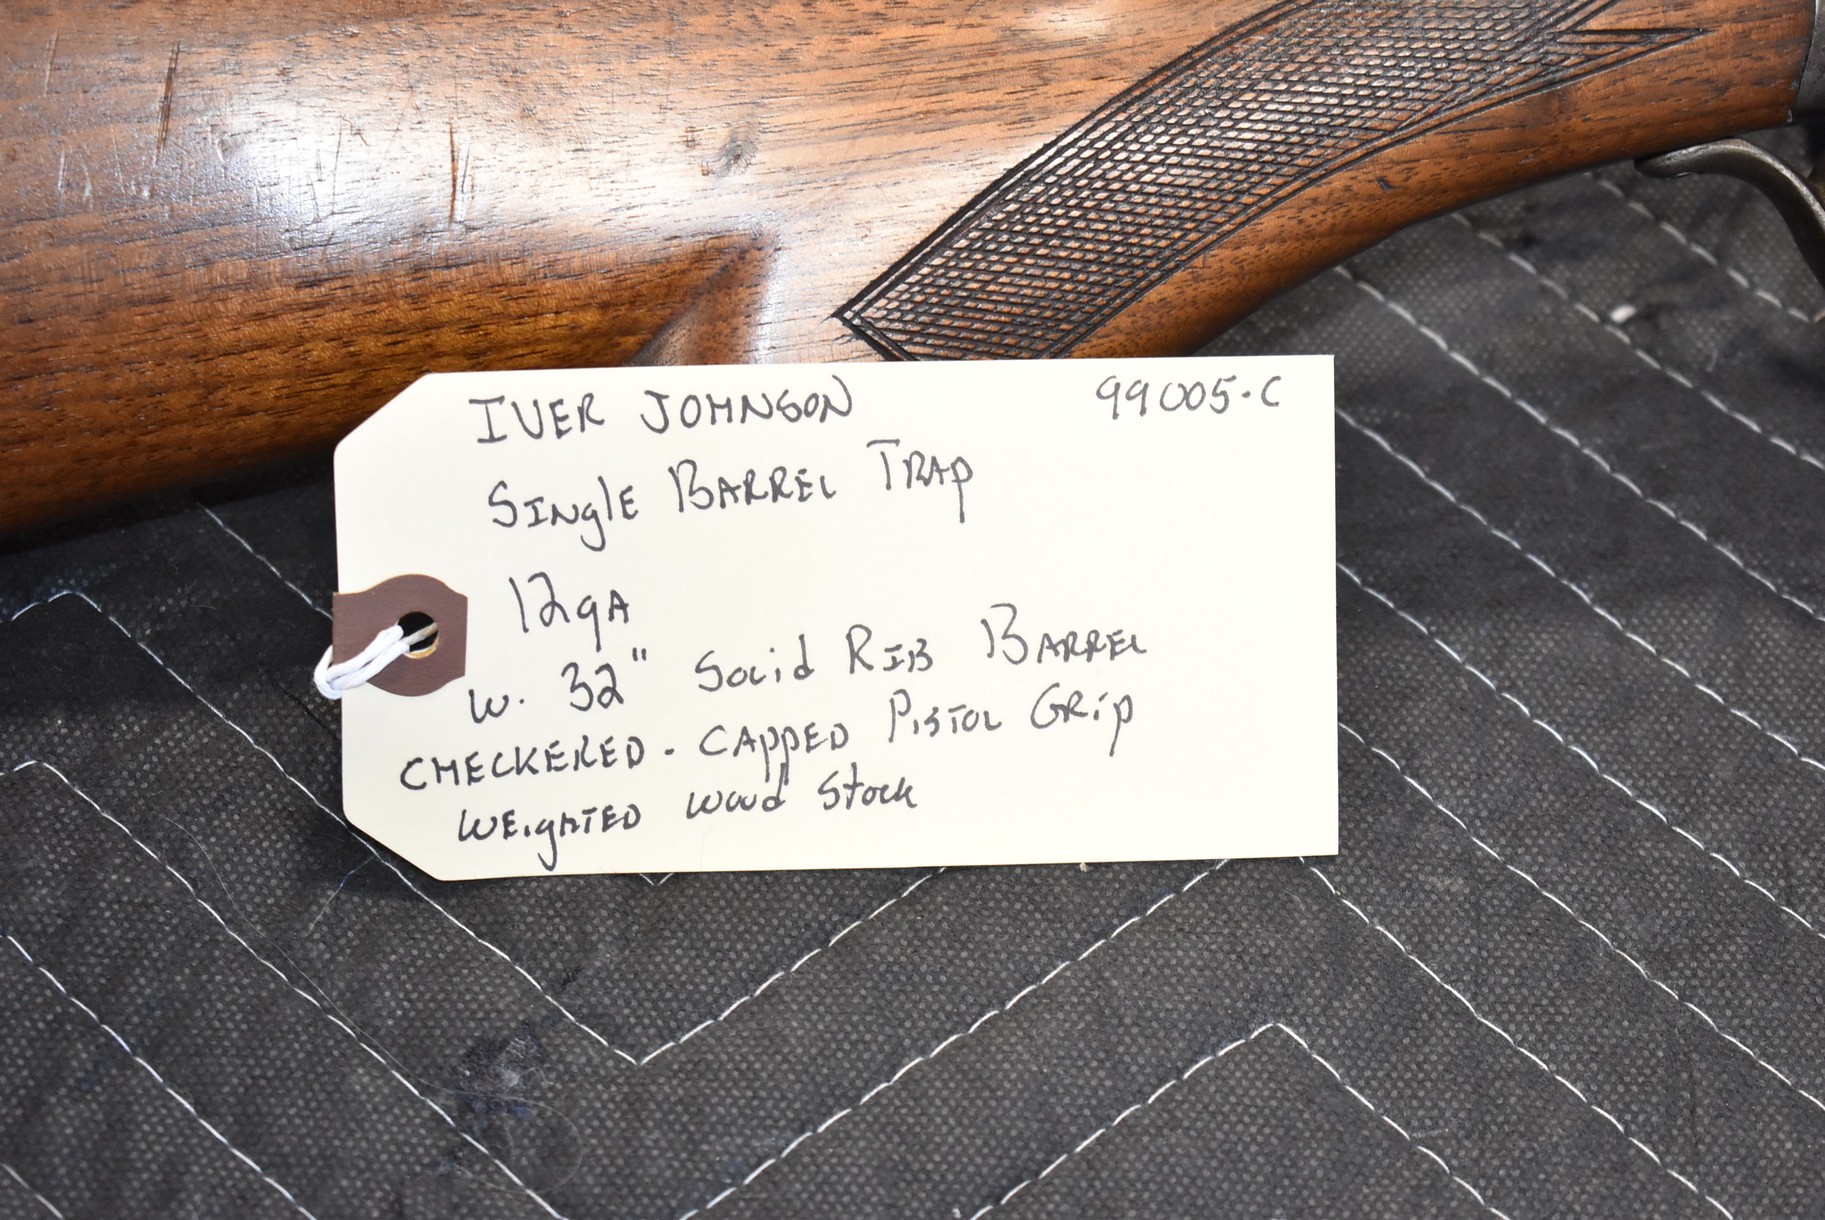 IVER JOHNSON 99005-C
SINGlE BARREL TRAP
12gA
w. 32" Solid RIB BARREL
CHECKERED - CAPPED PISTOL GRiP
WEigHTED wood Stock